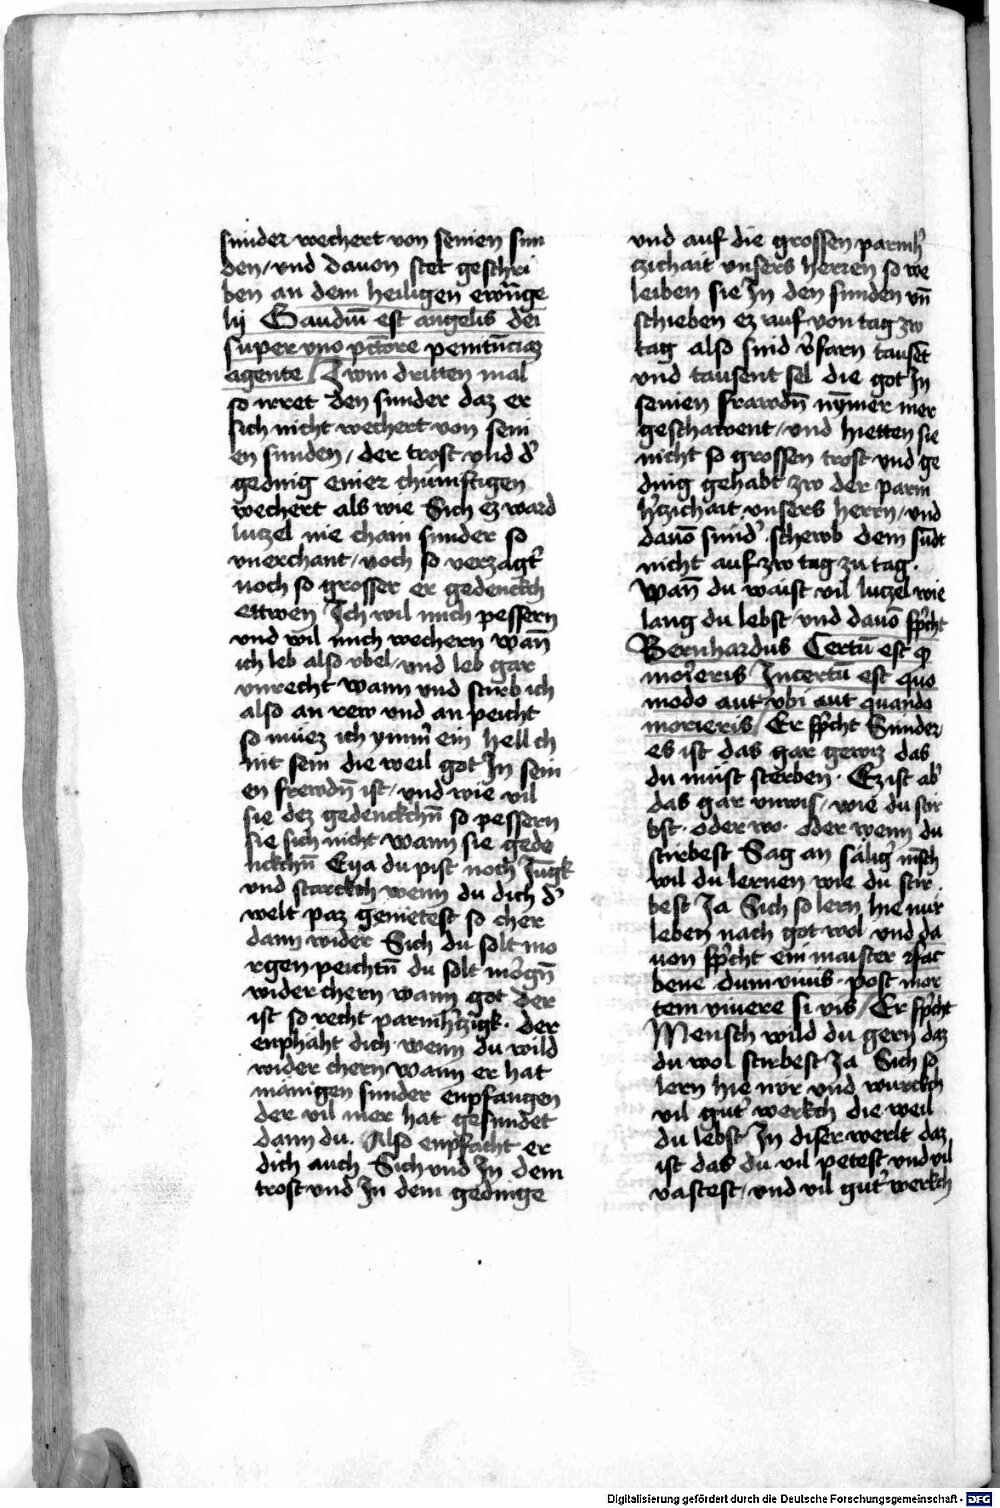 sunder wechert von seinen sun
den / vnd dauon stet geschri
ben an dem heiligen ewāge
lij Gaudiū est angelis dei
super vno pctore penitūciaz
agente / Zwm dritten mal
so irret den sunder daz er
sich nicht wechert von sein
en sunden / der trost vnd d̕
geding einer chumftigen
wechert als wie Sich ez ward
lutzel nie chain sunder so
vnerchant / noch so verzagt̕
noch so grosser er gedenckch
ettwen Ich wil mich pessern
vnd wil mich wechern wañ
ich leb also vbel / vnd leb gar
vnrecht wann vnd stirb ich
also an rew vnd an peicht
so müez ich ymm̕ ein hell ch
nit sein die weil got In sein
en frewdn̄ ist / vnd wie vil
sie dez gedenckchn̄ so pessern
sie sich nicht wann sie gede
nckchn̄ Eya du pist noch Jūgk
vnd starckch wenn du dich d̕
welt paz genietest so cher
dann wider Sich du solt mo
rgen peichtn̄ du solt morgn̄
wider chern wann got der
ist so recht parmh̕tzigk · der
enphäht dich wenn du wild
wider chern wann er hat
mänigen sunder enpfangen
der vil mer hat gesundet
dann du · Also enpfächt er
dich auch Sich vnd In dem
trost vnd In dem gedinge
vnd auf die grossen parmh̕
tzichait vnsers herren so we
leiben sie In den sunden vn̄
schieben ez auf von tag zw
tag also sind v̕farn tausēt
vnd tausent sel die got In
seinen frawdn̄ nymer mer
geschawent / vnd hietten sie
nicht so grossen trost vnd ge
ding gehabt zw der parm
h̕tzichait vnsers herrn / vnd
dauō sund̕ · schewb dem sūdt
nicht auf zw tag zu tag ·
Wañ du waist vil lutzel wie
lang du lebst / vnd dauō sp̕cht
Bernhardus Certū est q̄
morieris Incertū est quo
modo aut vbi aut quando
morieris / Er sp̕cht Sunder
es ist das gar gewiz das
du müst sterben · Ez ist ab̕
das gar vnwis / wie du stir
bst · oder wo · oder wenn du
stirbest Sag an sälig̕ mēsch
wil du lernen wie du stir
best Ja Sich so lern hie nur
leben nach got wol vnd da
uon sp̕cht ein maister
bene dum viuis · post mor
tem viuere si vis / Er sp̕cht
Mensch wild du gern daz
du wol stirbest Ja Sich so
lern hie nvr vnd wurckch
vil gut̕ werkch die weil
du lebst In diser werlt daz
ist das du vil petest vnd vil
vastest / vnd vil gut̕ werkch
Digitalisierung gefördert durch die Deutsche Forschungsgemeinschaft - DFG